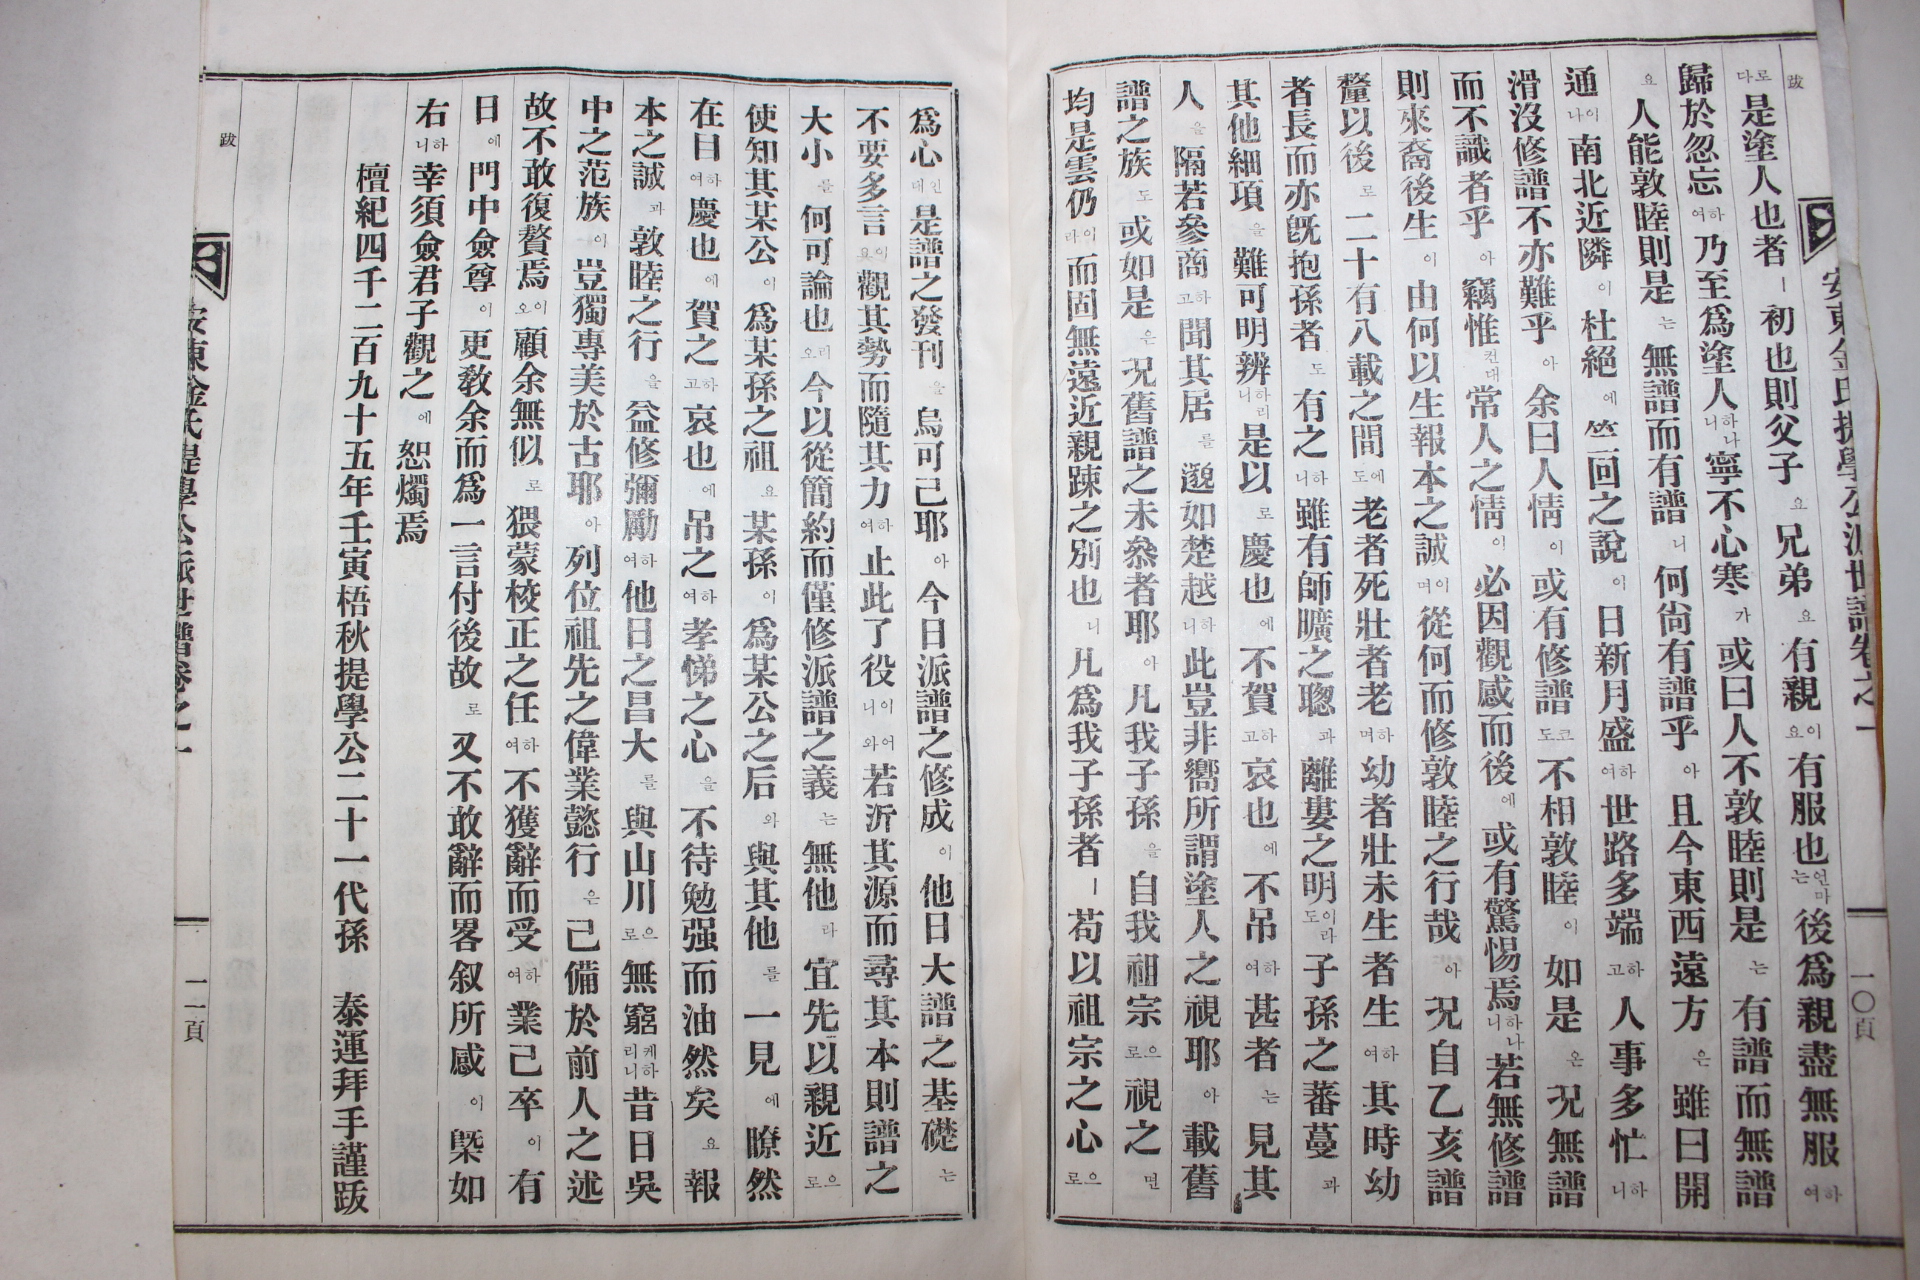 跋
安東金氏提學公派世譜卷之一
一〇頁
로다是塗人也者ㅣ初也則父子요兄弟요有親이요有服也언마는後爲親盡無服하여
歸於忽忘하여乃至爲塗人하나니寧不心寒가或曰人不敦睦則是는有譜而無譜
요人能敦睦則是는無譜而有譜니何尙有譜乎아且今東西遠方은雖曰開
通이나南北近隣이杜絶에竺回之說이日新月盛하여世路多端하고人事多忙하니
滑沒修譜不亦難乎아余曰人情이或有修譜코도不相敦睦이如是온況無譜
而不識者乎아竊惟컨대常人之情이必因觀感而後에或有驚惕焉하나니若無修譜
則來裔後生이由何以生報本之誠이며從何而修敦睦之行哉아況自乙亥譜
釐以後로二十有八載之間에도老者死壯者老하며幼者壯未生者生하여其時幼
者長而亦旣抱孫者도有之하니雖有師曠之聰과離婁之明이라도子孫之蕃蔓과
其他細項을難可明辨하리니是以로慶也에不賀하고哀也에不吊하여甚者는見其
人을隔若參商하고聞其居를邈如楚越하니此豈非嚮所謂塗人之視耶아載舊
譜之族도或如是은況舊譜之未叅者耶아凡我子孫을自我祖宗으로視之면
均是雲仍이라而固無遠近親踈之別也니凡爲我子孫者ㅣ苟以祖宗之心으로
爲心인대是譜之發刊을烏可己耶아今日派譜之修成이他日大譜之基礎는
不要多言이요觀其勢而隨其力하여止此了役이니와어若沂其源而尋其本則譜之
大小를何可論也리오今以從簡約而僅修派譜之義는無他라宜先以親近으로
使知其某公이爲某孫之祖요某孫이爲某公之后와與其他를一見에瞭然
在目하여慶也에賀之하고哀也에吊之하여孝悌之心을不待勉强而油然矣요報
本之誠과敦睦之行을益修彌勵하여他日之昌大를與山川으로無窮케하리니昔日吳
中之范族이豈獨專美於古耶아列位祖先之偉業懿行은己備於前人之述
故不敢復贅焉이오顧余無似로猥蒙校正之任하여不獲辭而受하여業己卒이有
日에門中僉尊이更敎余而爲一言付後故로又不敢辭而畧叙所感이槩如
右하니幸須僉君子觀之에恕燭焉
檀紀四千二百九十五年壬寅梧秋提學公二十一代孫 泰運拜手謹跋
跋
安東金氏提學公派世譜卷之一
一一頁